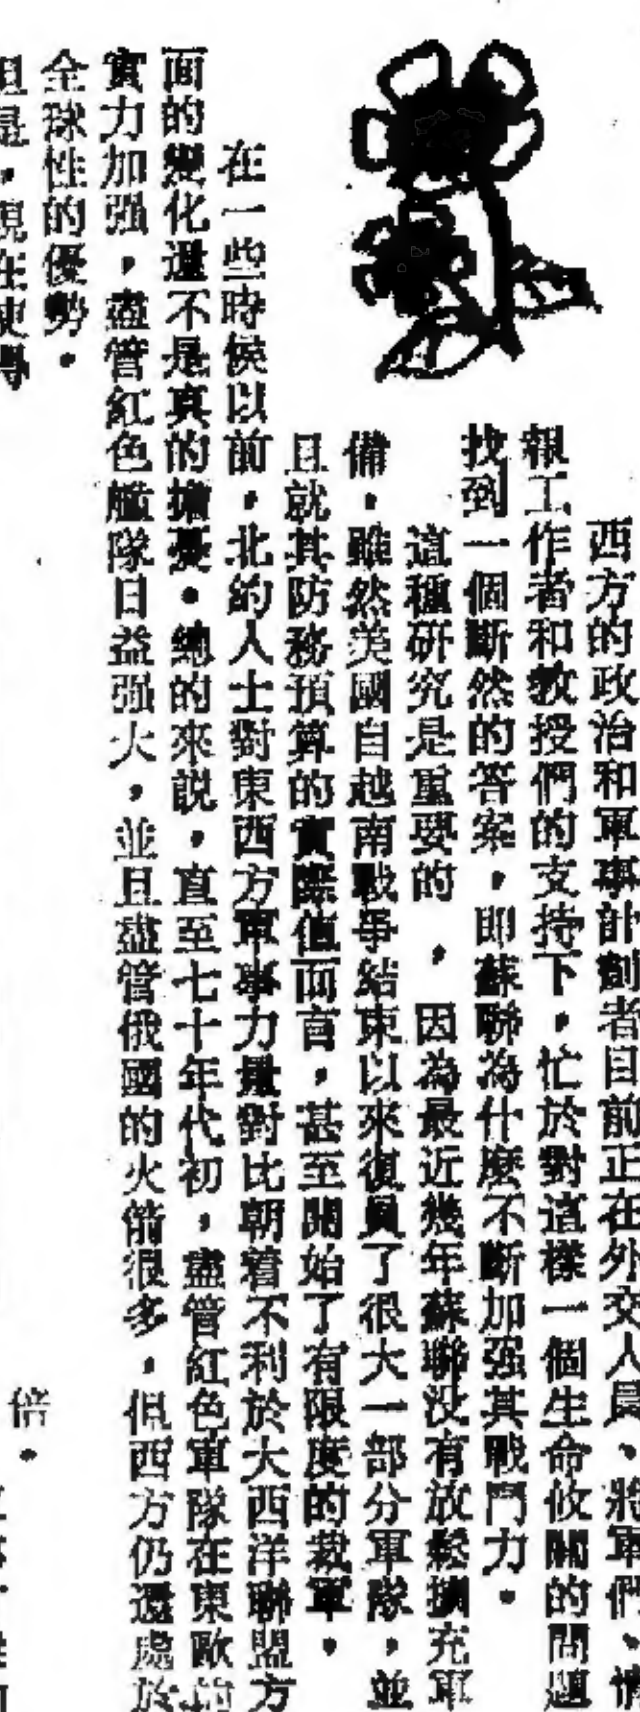 西方的政治和軍事計劃者目前正在外交人員、將軍們、情
報工作者和教授們的支持下，忙於對這樣一個生命攸關的問題
找到一個斷然的答案，即蘇聯為什麼不斷加强其戰鬥力。
這種研究是重要的，因為最近幾年蘇聯没有放鬆擴充軍
備。雖然美國自越南戰爭結束以來復員了很大一部分軍隊，並
且就其防務預算的實際值而言，甚至開始了有限度的裁軍。
在一些時候以前，北約人士對東西方軍事力量對比朝着不利於大西洋聯盟方
面的變化還不是真的擔憂。總的來説，直至七十年代初，盡管紅色軍隊在東歐的
實力加强，盡管紅色艦隊日益强大，並且盡管俄國的火箭很多，但西方仍還處於
全球性的優勢。
但是，現在使專
倍。